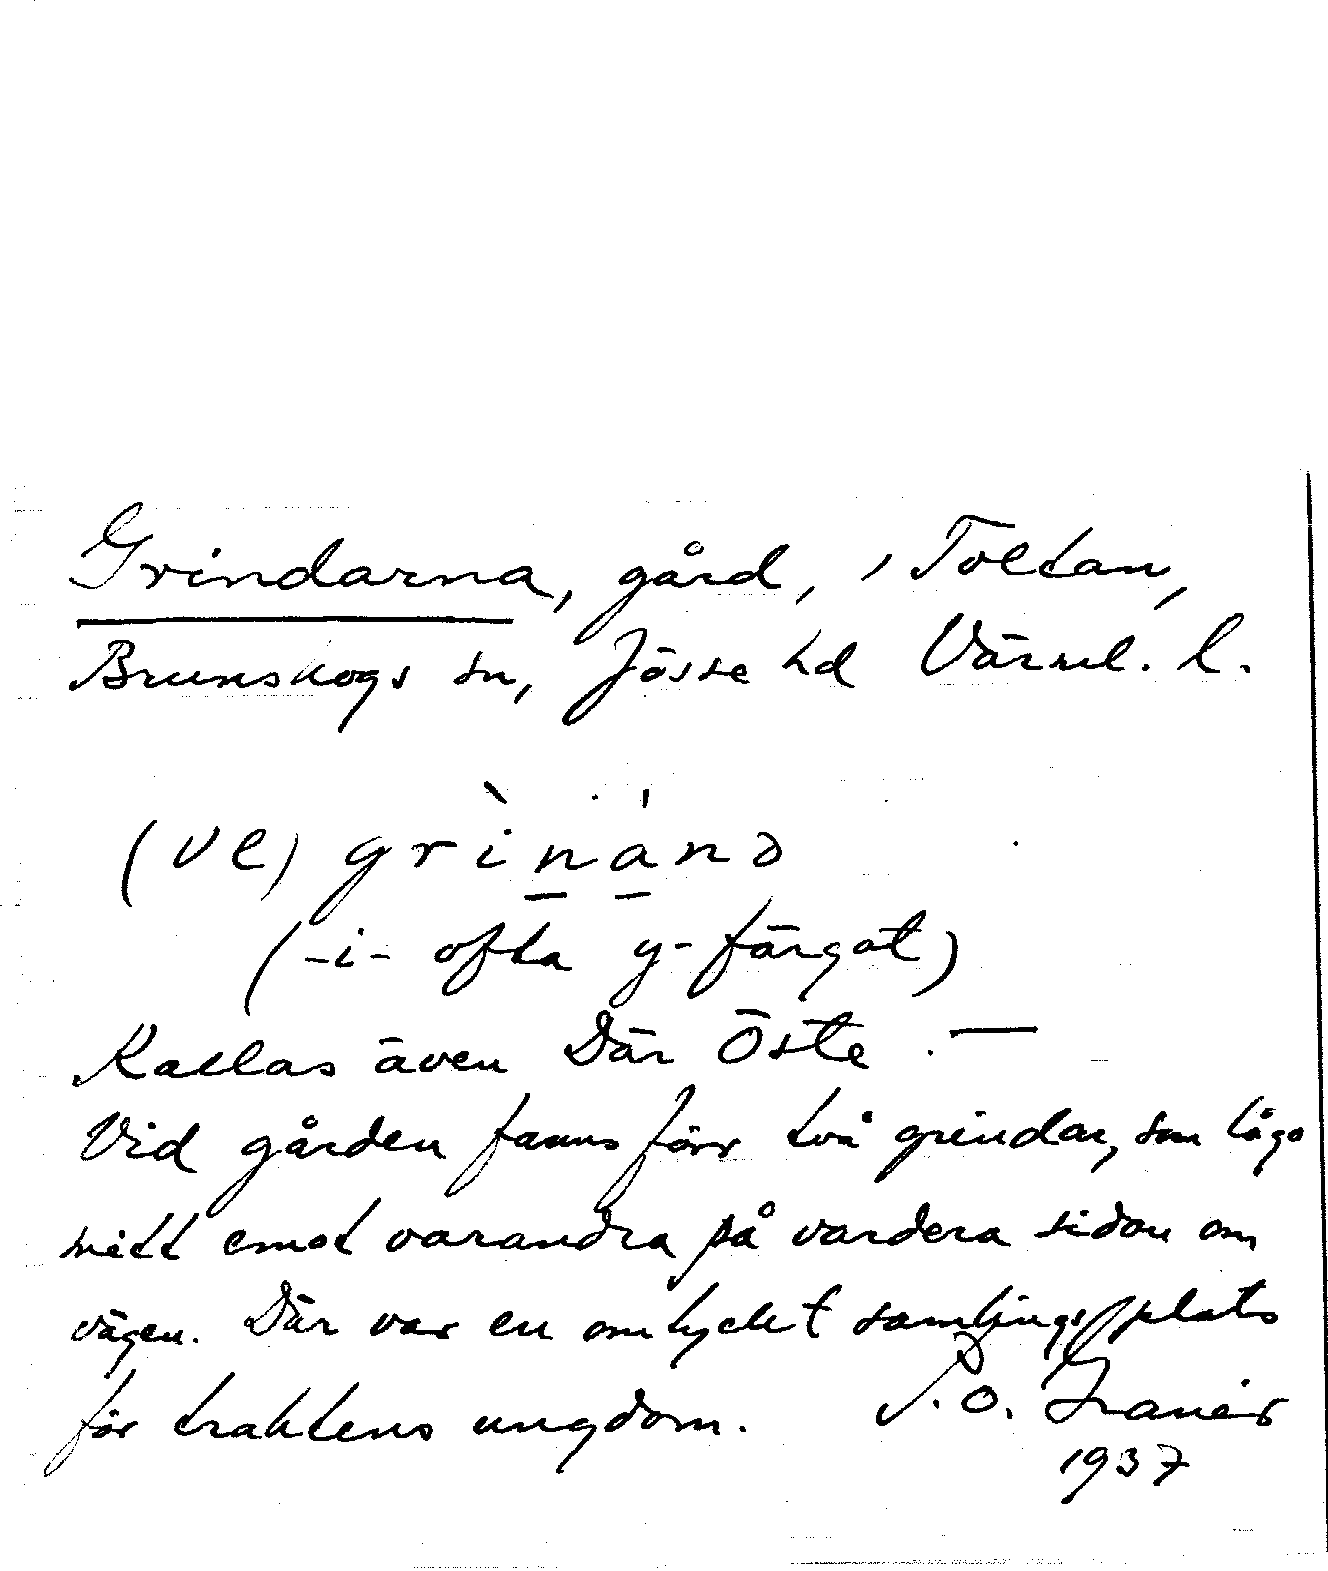 Grindarna, gård, i Toltan,
Brunskogs sn, Jösse hd Värml. l.
(ve) grìnánə
(-i- ofta y-färgat)
Kallas även Där Öste. —
Vid gården fanns förr två grindar, som lågo
mitt emot varandra på vardera sidan om
vägen. Där var en omtyckt samlingsplats
för traktens ungdom. P. O. Granér
1937